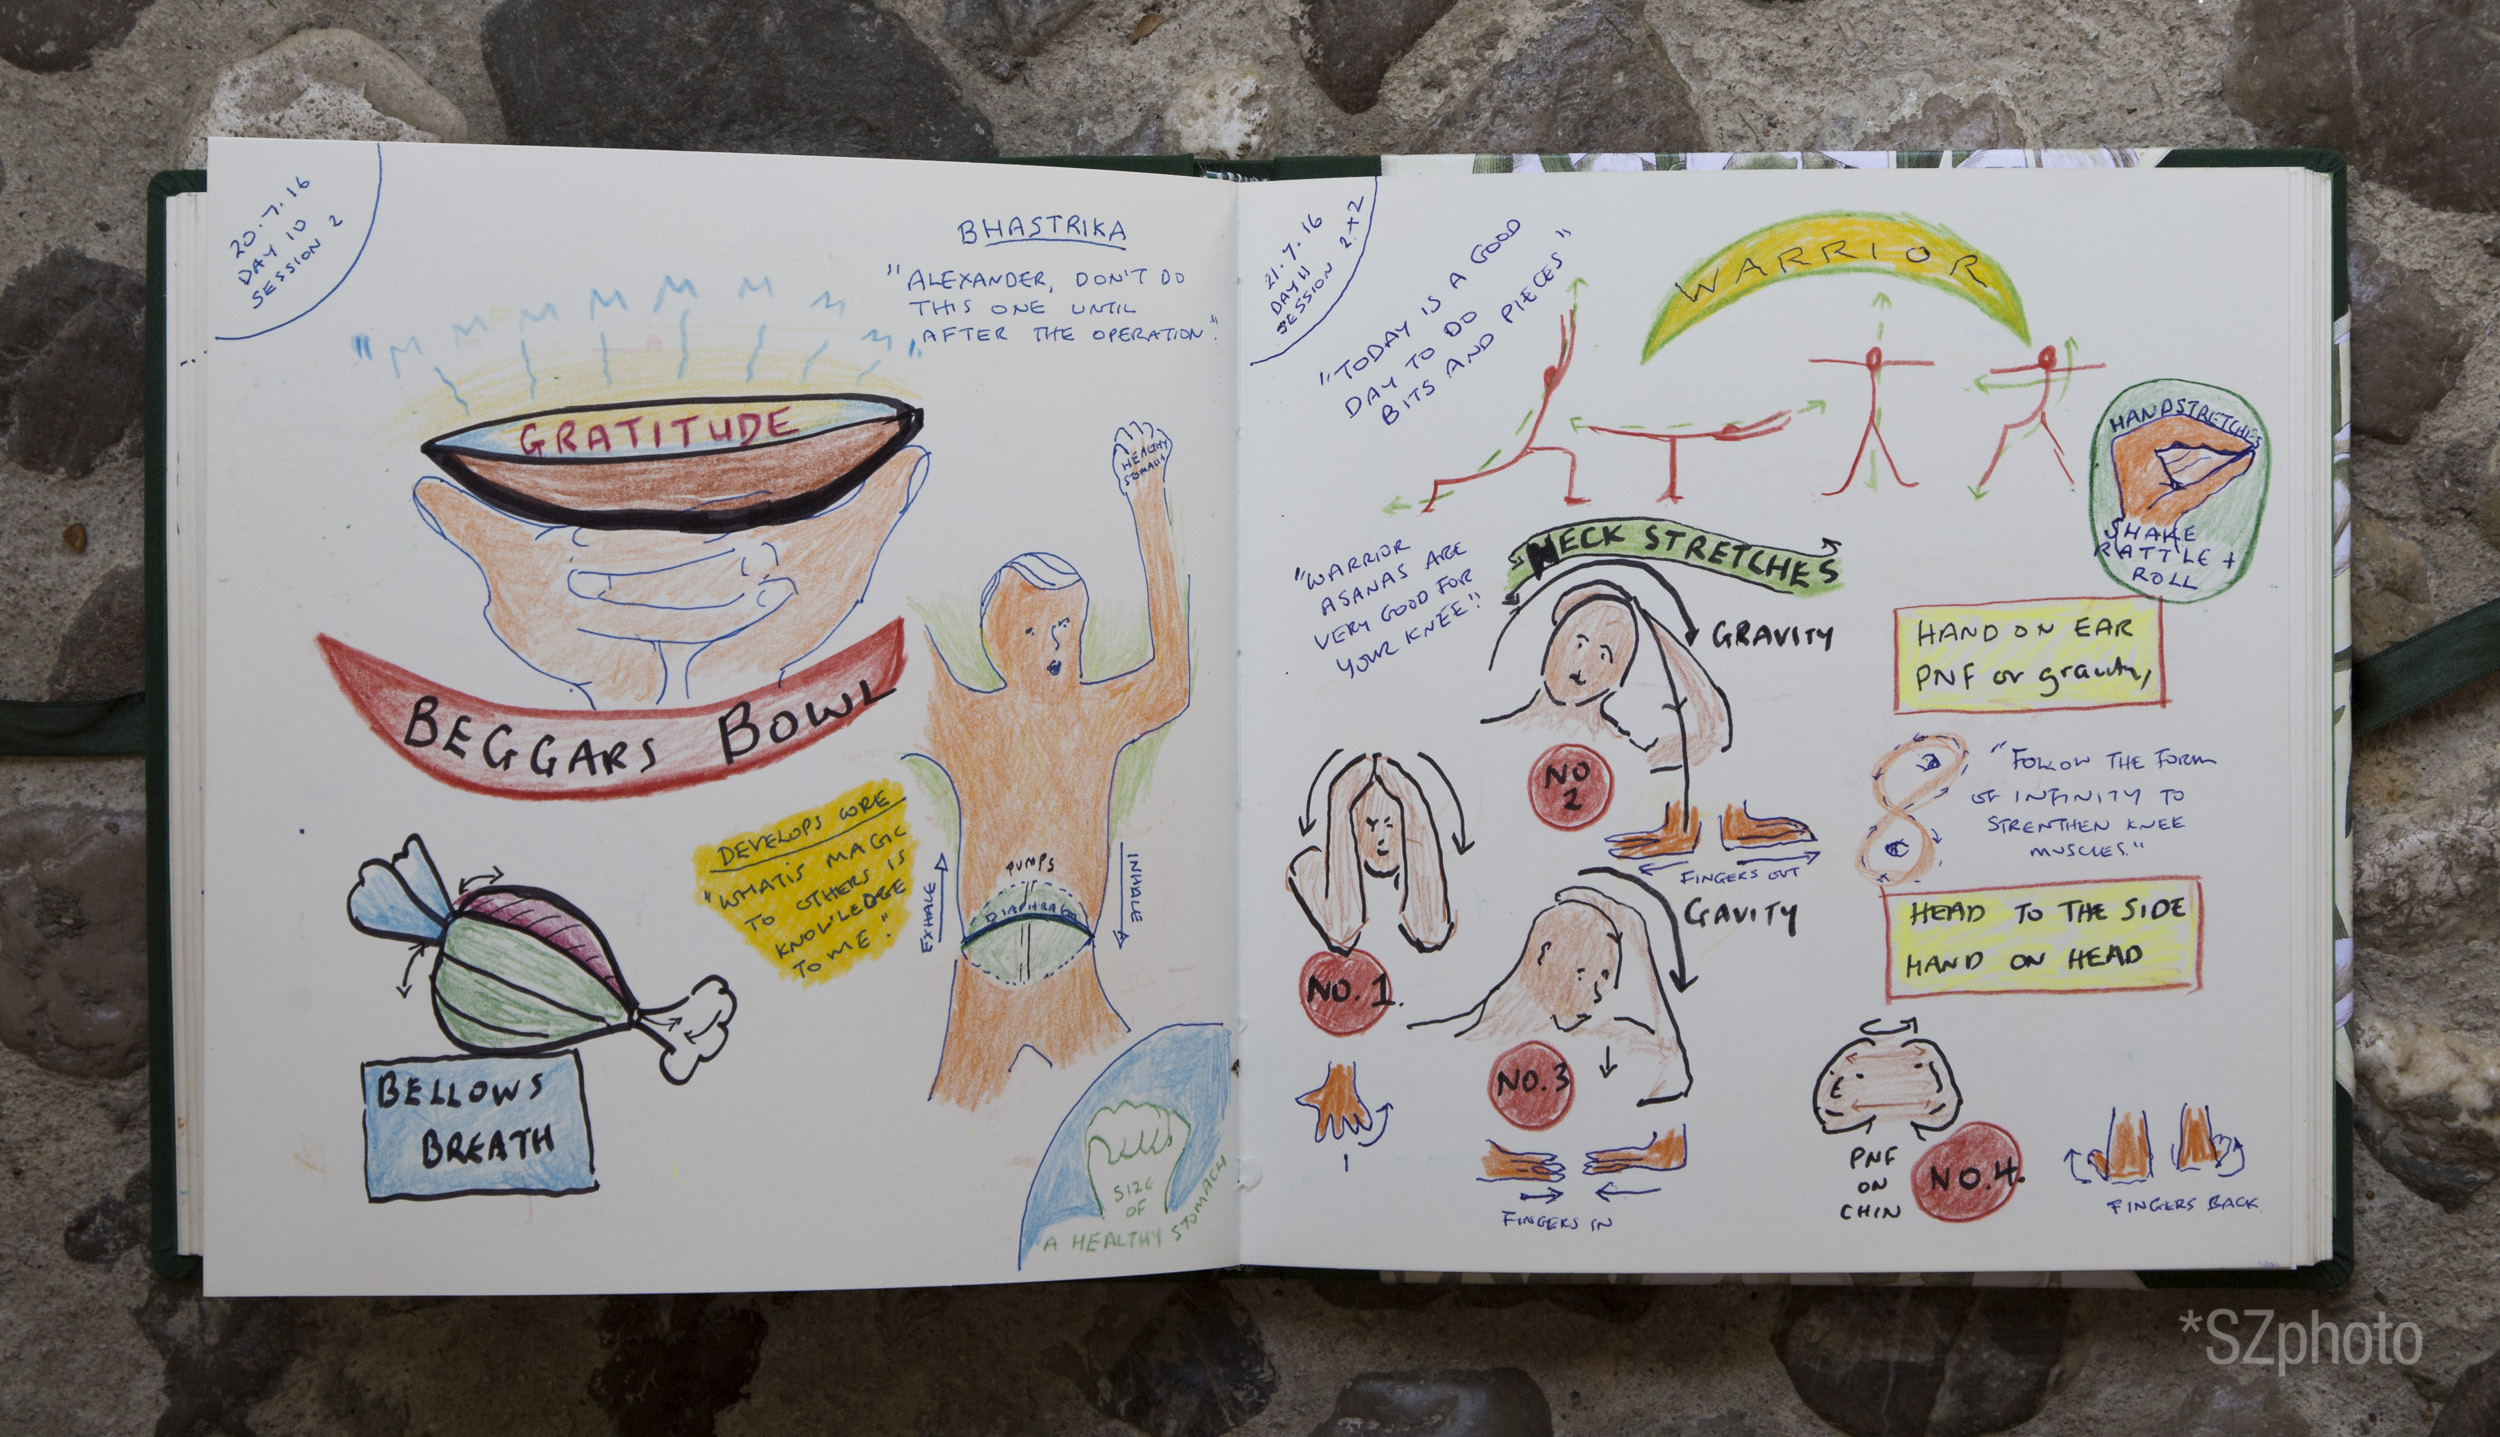 20.7.16
DAY 10
SESSION 2
BHASTRIKA
"ALEXANDER, DON'T DO
THIS ONE UNTIL
AFTER THE OPERATION".
GRATITUDE
HEALTHY
STOMACH
BEGGARS BOWL
DEVELOPS CORE
"WHAT IS MAGIC
TO OTHERS IS
KNOWLEDGE
TO ME".
PUMPS
DIAPHRAGM
EXHALE
INHALE
BELLOWS
BREATH
SIZE
OF
A HEALTHY STOMACH
21.7.16
DAY 11
SESSION 2+2
"TODAY IS A GOOD
DAY TO DO
BITS AND PIECES"
WARRIOR
HANDSTRETCHES
SHAKE
RATTLE +
ROLL
"WARRIOR
ASANAS ARE
VERY GOOD FOR
YOUR KNEE"
NECK STRETCHES
GRAVITY
HAND ON EAR
PNF or gravity,
NO
2
FINGERS OUT
"FOLLOW THE FORM
OF INFINITY TO
STRENTHEN KNEE
MUSCLES."
GAVITY
HEAD TO THE SIDE
HAND ON HEAD
NO. 1.
NO. 3
1
FINGERS IN
PNF
ON
CHIN
NO. 4.
FINGERS BACK
*SZphoto